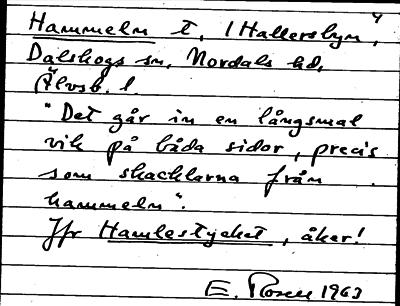 Hammeln t. i Hallerbyn,
Dalskogs sn, Nordals hd,
Älvsb. l.
"Det går in en långsmal
vik på båda sidor, precis
som skacklarna från
hammeln".
Jfr Hamlestycket, åker!
E. Rosell 1963